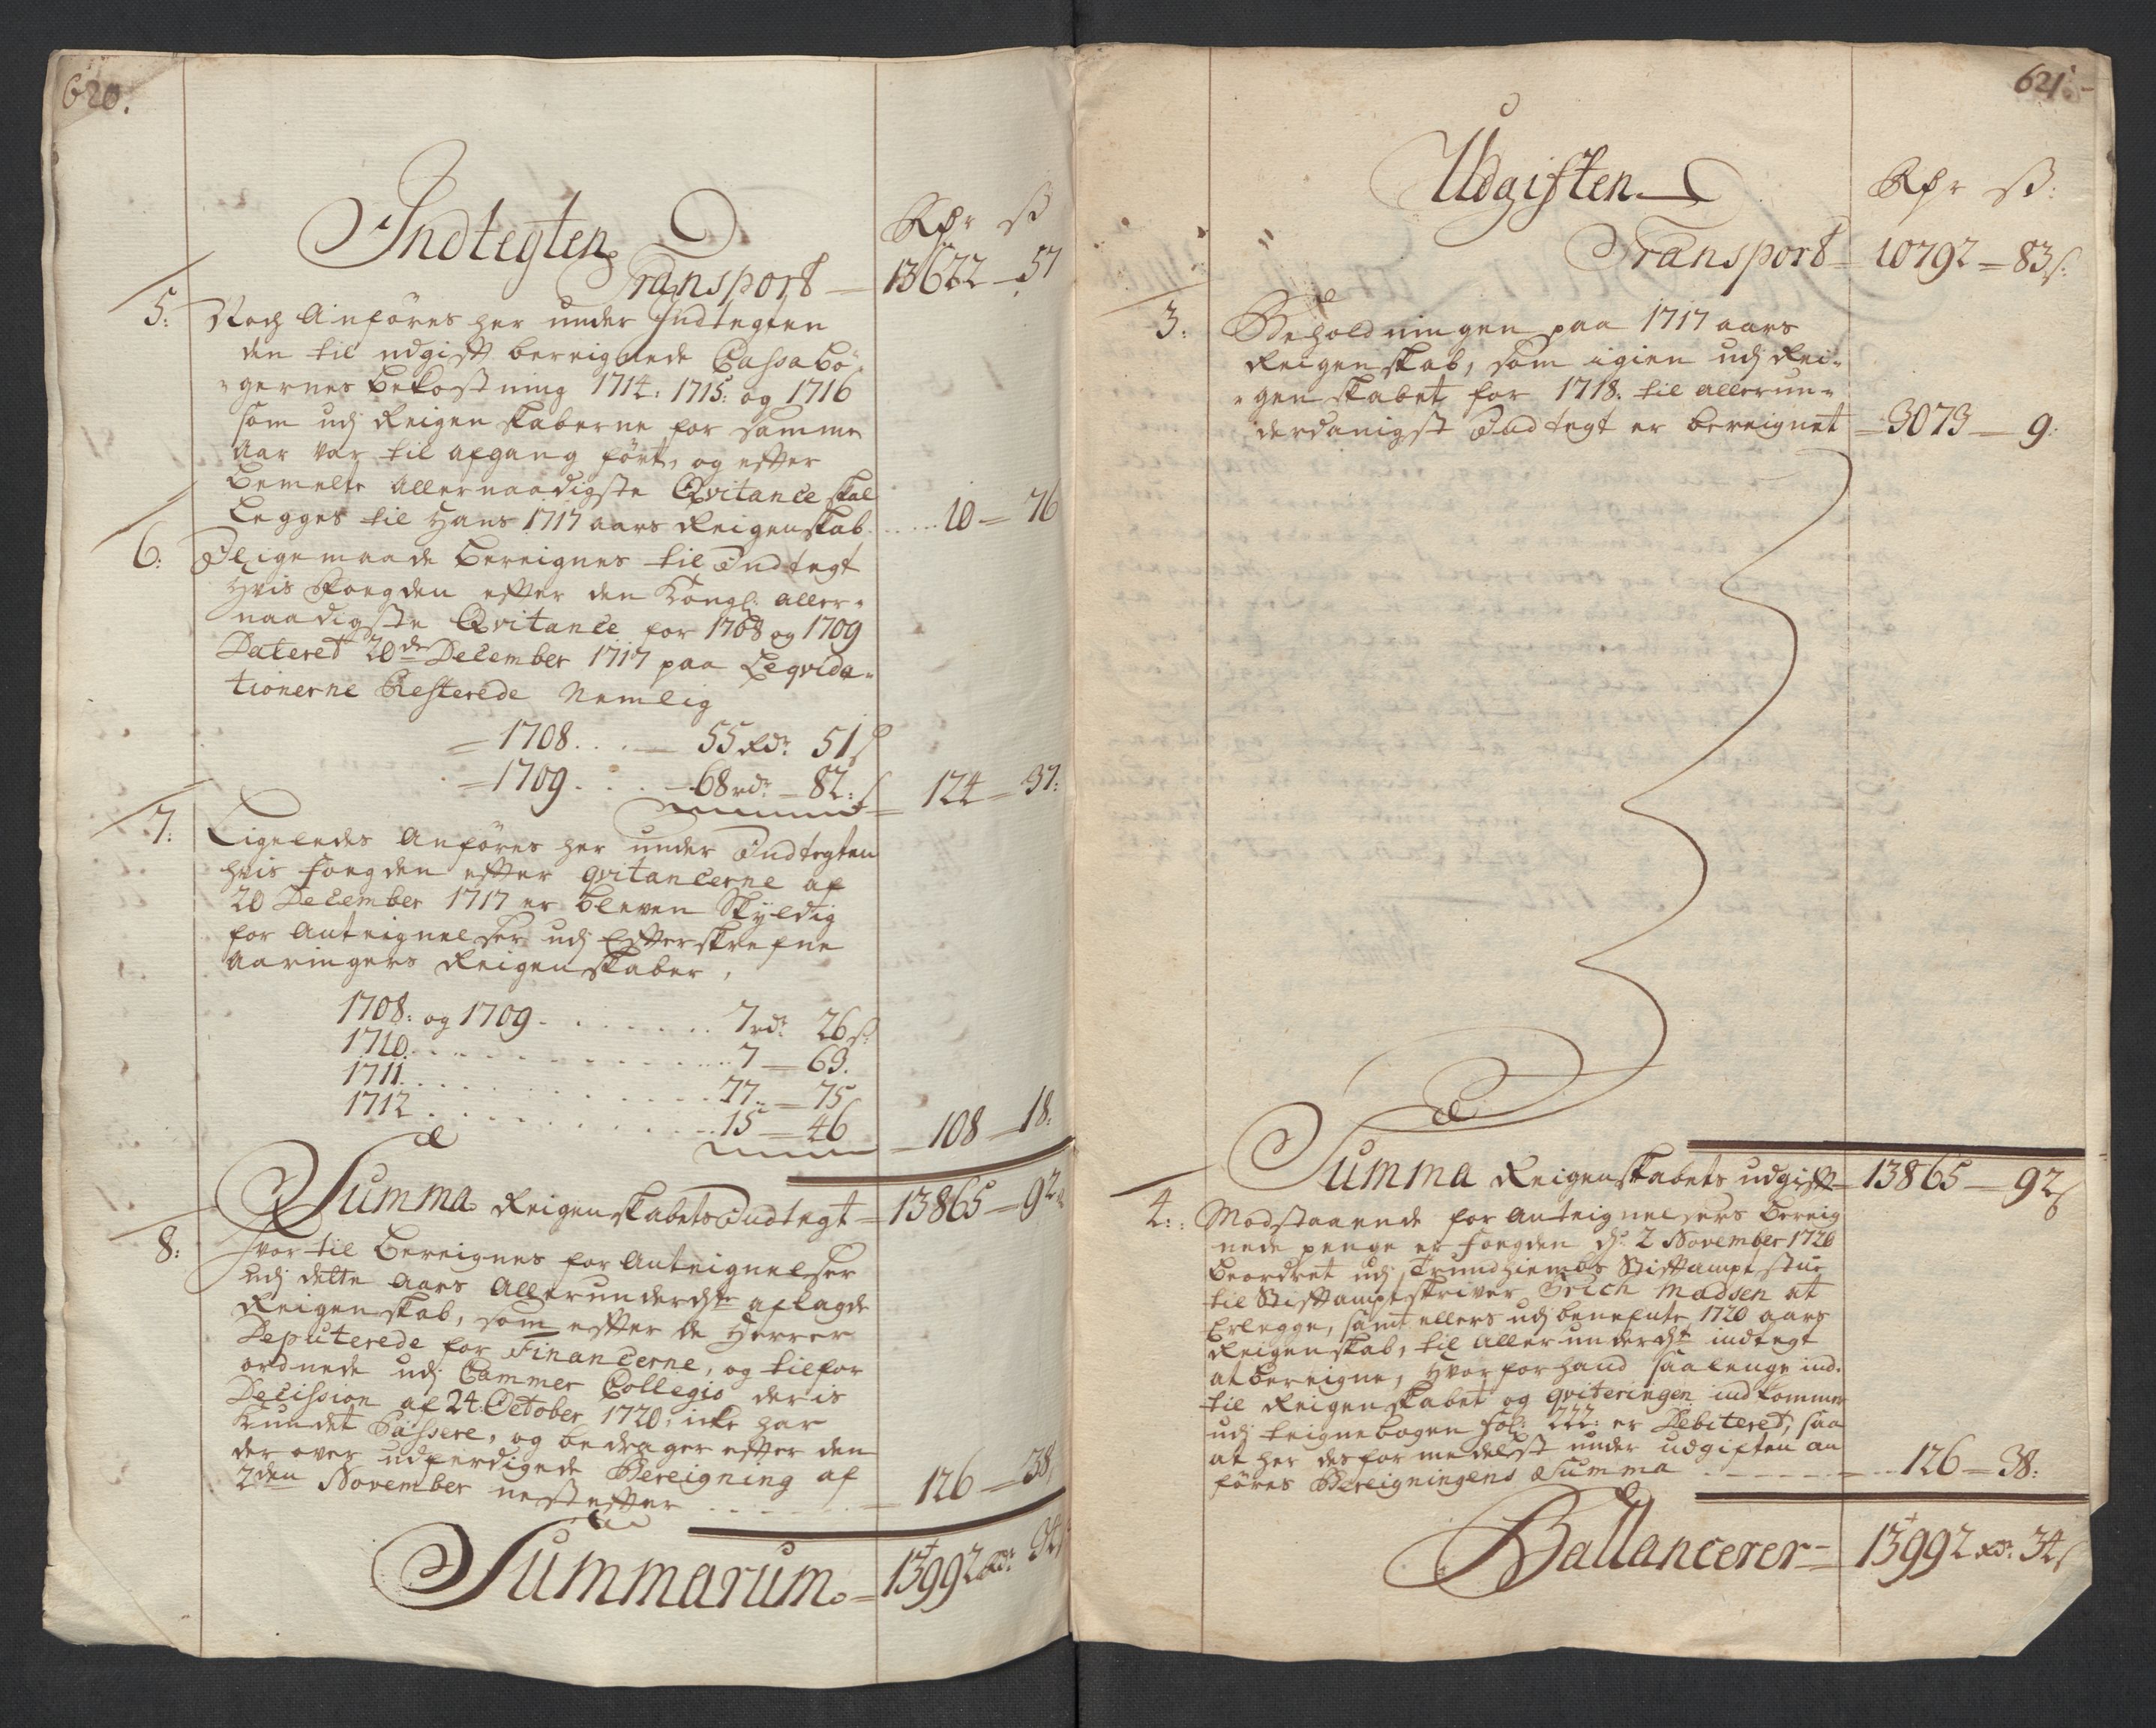 620.
Indtegten
Rdr ß
Transport — 13622 — 57
5: Noch Anföres her under Indtegten
den til udgift bereignede Cassabö-
gernes bekostning 1714. 1715: og 1716
som udj Reigenskaberne for samme
Aar var til afgang fört, og efter
bemelte Allernaadigste Qvitance skal
legges til Hans 1717 aars Reigenskab ..... 10 — 76
6: Ligemaade bereignes til Indtegt
hvis Fogden efter den Kongl: aller-
naadigste Qvitance for 1708 og 1709
Dateret 20de December 1717 paa Leqvida-
tionerne Resterede Nemlig
1708. . . — 55 Rdr 51 ß
1709. . . . 68 rdr — 82: ß — 124 — 37:
7: Ligeledes Anföres her under Indtegten
hvis Fogden efter qvitancerne af
20 December 1717 er bleven Skyldig
for Anteignelser udj Efterskrefne
Aaringers Reigenskaber,
1708: og 1709 . . . . . . 7 rdr 26 ß:
1710. . . . . . . . 7 — 63.
1711. . . . . . . . 77 — 75
1712 . . . . . . . . 15 — 46 — 108 — 18:
Summa Reigenskabets Indtegt — 13865 — 92 ß
8: Hvortil bereignes for Anteignelser
udj dette Aars Allerunderdste aflagde
Reigenskab, som efter de Herrer
Deputerede for Financerne, og tilfor
ordnede udj Cammer Collegio deris
Decission af 24. October 1720, icke har
kundet Passere, og bedrager efter den
der over udferdigede Bereigning af
2den November nestefter . . . . . — 126 — 38,
Summarum — 13992 Rdr 34 ß
621.
Udgiften
Rdr ß:
Transport — 10792 — 83 ß:
3: Beholdningen paa 1717 aars
Reigenskab, som igien udj Rei-
genskabet for 1718. til allerun-
derdanigst Indtegt er bereignet — 3073 — 9:
Summa Reigenskabets udgift — 13865 — 92 ß
4: Modstaaende for Anteignelsers bereig
nede penge er Fogden d: 2 November 1720
beordret udj Trundhiembs Stiftamptstue
til Stiftamptskriver Erich Madsen at
Erlegge, samt ellers udj benefnte 1720 aars
Reigenskab, til Allerunderdst indtegt
at bereigne, hvorfor hand saalenge ind-
til Reigenskabet og qviteringen indkommer
udj teignebogen Fol: 222: er Debiteret, saa
at her desformedelst under udgiften an
föres Bereigningens Summa . . . . . 126 — 38:
Ballancerer — 13992 Rdr 34 ß